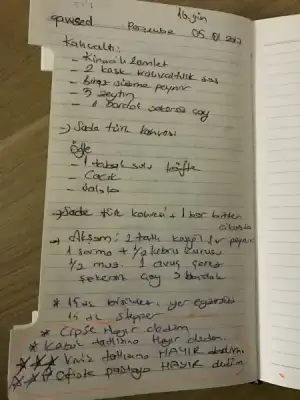 16.gün
Perşembe 05.01.2017
Kahvaltı:
- Kinoalı omlet
- 2 kaşık kahvaltılık sos
- Biraz süzme peynir
- 3 zeytin
- 1 bardak şekersiz çay
→ Sade türk kahvesi
Öğle
- 1 tabak sulu köfte
- Cacık
- Salata
→ Sade türk kahvesi + 1 kare bitter çikolata
→ Akşam: 2 tatlı kaşığı lor peyniri
1 sarma + 1/2 kıbrıs kurusu
1/2 muz 1 avuç çerez
şekersiz çay 3 bardak
* 15 dk bisiklet, yer egzersizi
15 dk stepper
* Cipse Hayır dedim
* Kabak tatlısına Hayır dedim
HAYIR dedim
* Ofiste pastaya HAYIR dedim